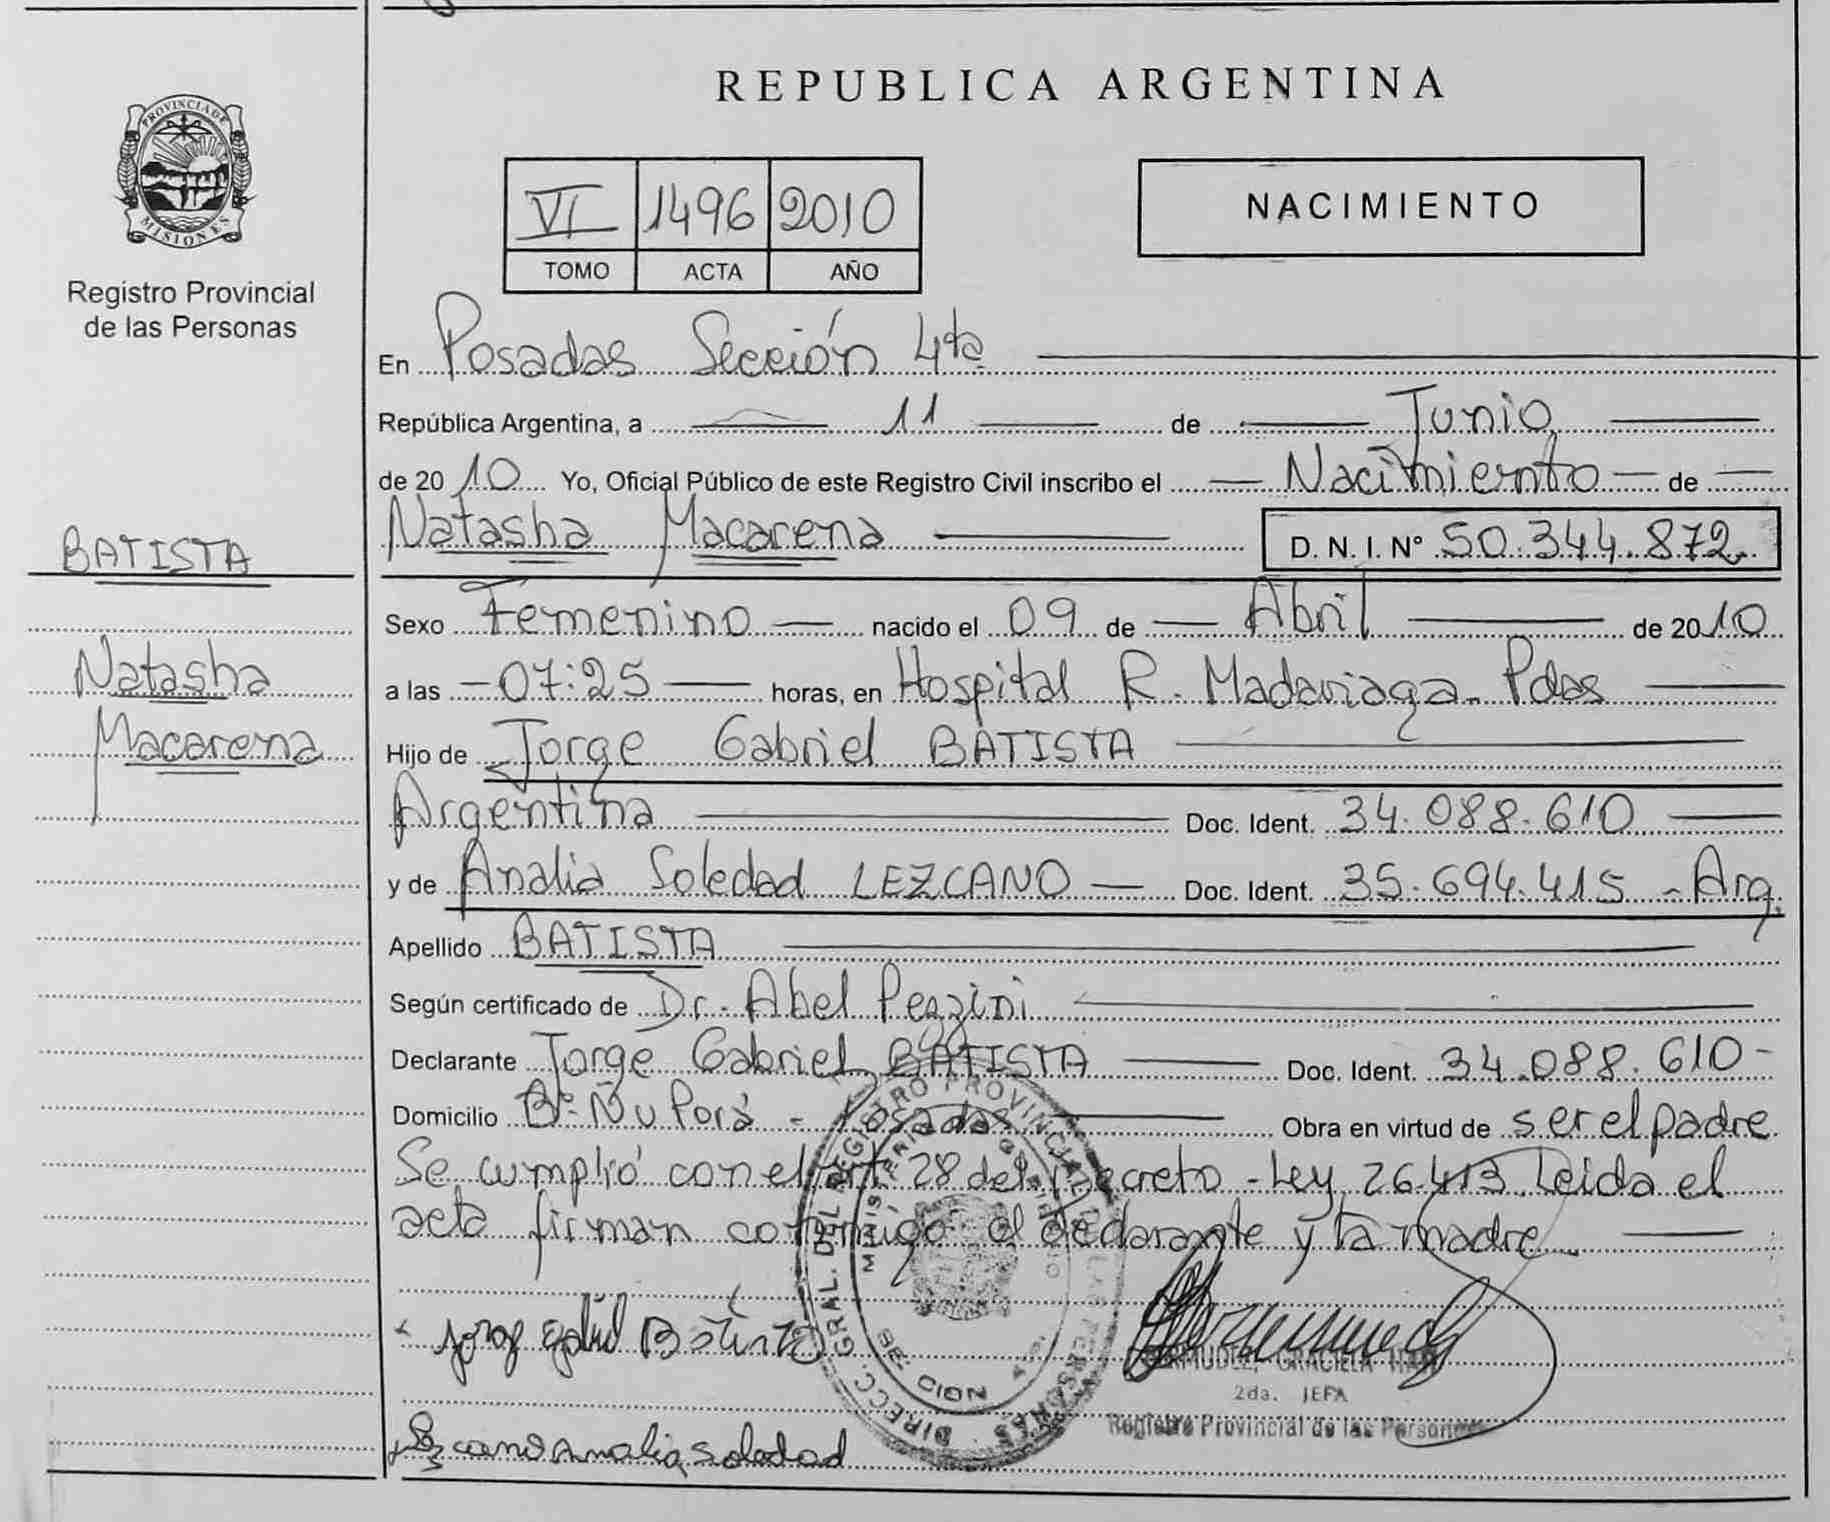 REPUBLICA ARGENTINA
PROVINCIA DE
MISIONES
Registro Provincial
de las Personas
VI 1496 2010
TOMO ACTA AÑO
NACIMIENTO
En Posadas Sección 4ta
República Argentina, a 11 de Junio
de 2010 Yo, Oficial Público de este Registro Civil inscribo el Nacimiento de
Natasha Macarena D. N. I. Nº 50.344.872
BATISTA
Natasha
Macarena
Sexo Femenino nacido el 09 de Abril de 2010
a las 07:25 horas, en Hospital R. Madariaga. Pdas
Hijo de Jorge Gabriel BATISTA
Argentina Doc. Ident. 34.088.610
y de Analia Soledad LEZCANO Doc. Ident. 35.694.415 - Arg.
Apellido BATISTA
Según certificado de Dr. Abel Pezzini
Declarante Jorge Gabriel BATISTA Doc. Ident. 34.088.610-
Domicilio Bº Ñu Porá - Posadas Obra en virtud de ser el padre
Se cumplió con el art 28 del Decreto - Ley 26.413. Leida el
acta firman conmigo el declarante y la madre
Batista
DIRECC. GRAL. DEL REGISTRO PROVINCIAL DE LAS PERSONAS
GRACIELA
2da. JEFA
Registro Provincial de las Personas
Lezcano Analia Soledad